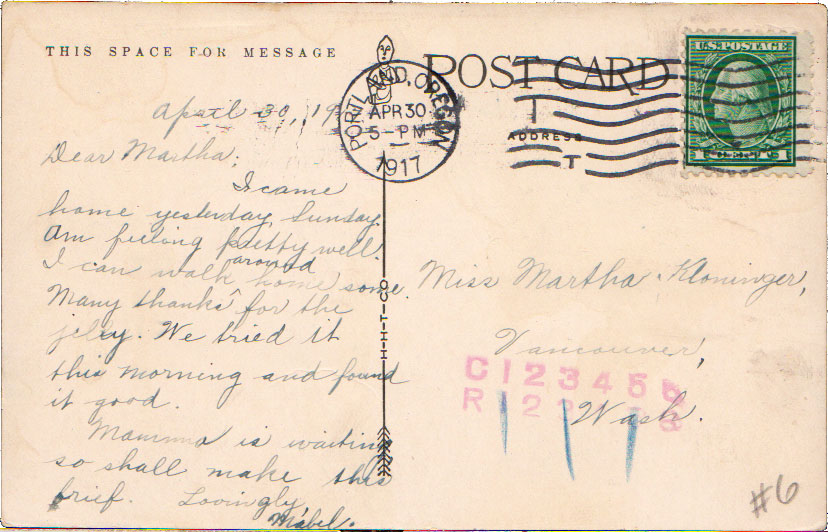 THIS SPACE FOR MESSAGE
POST CARD
ADDRESS
PORTLAND, OREGON
APR 30
5-PM
1917
U.S. POSTAGE
1 CENT 1
April 30, 19
Dear Martha;
I came
home yesterday, Sunday.
Am feeling pretty well.
I can walk around home some.
Many thanks for the
jelly. We tried it
this morning and found
it good.
Mamma is waiting
so shall make this
brief. Lovingly
Mabel.
H-H-T-CO
Miss Martha Kloninger,
Vancouver,
Wash.
C 1 2 3 4 5 6
R 1 2
#6